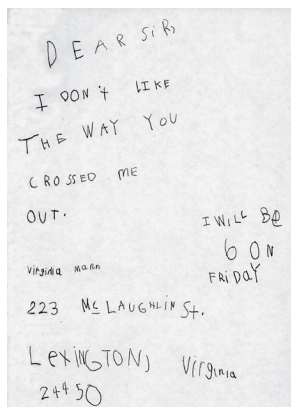 DEAR SiR,
I DON't LIKE
THE WAY YOU
CROSSED ME
OUT.
I WILL BE
6 ON
FRIDAY
Virginia Mann
223 Mc LAUGHLIN St.
LeXINGTON, Virginia
24450